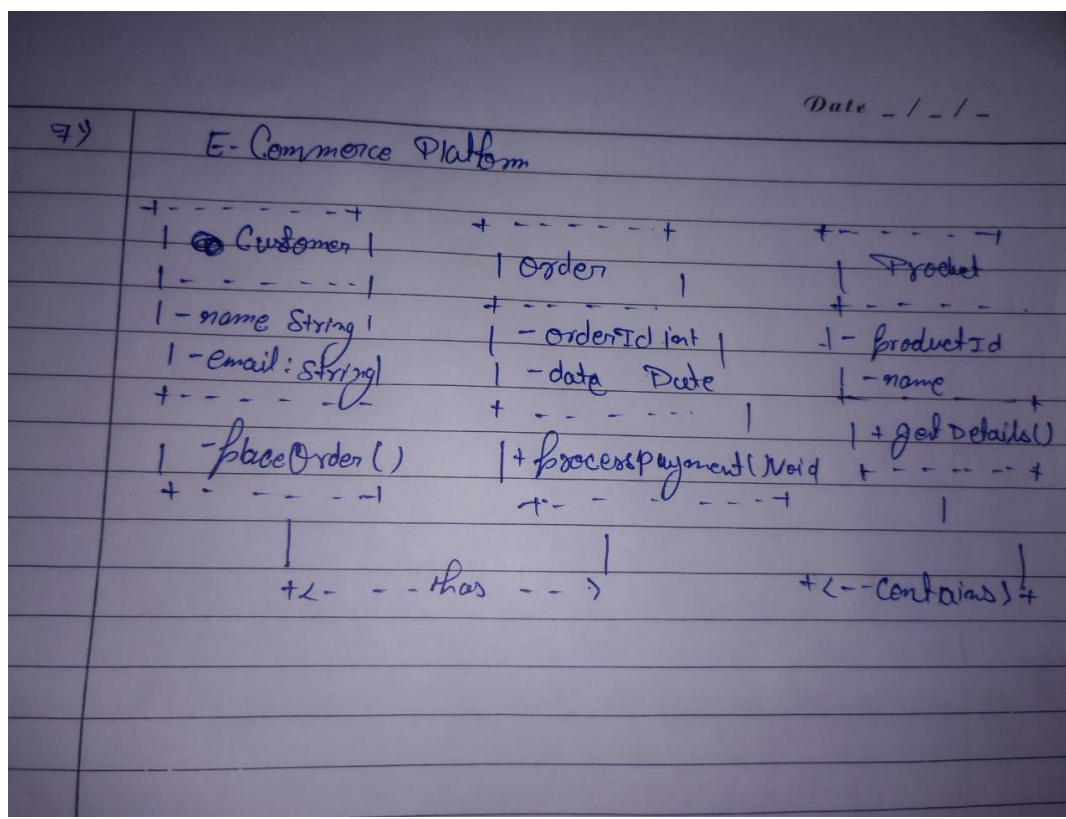 Date _ / _ / _
7) E-Commerce Platform
+ - - - - - - - +
| Customer |
| - - - - - - - |
| - name String |
| - email: String |
+ - - - - - - -
| - placeOrder()
+ - - - - - |
+ - - - - - - +
| Order |
+ - - - - - -
| - orderId int |
| - data Date
+ - - - - - - |
| + processpayment(Void
+ - - - - - - - +
+ - - - - - - |
| Prodket
+ - - - - -
| - productId
| - name
+ - - - - - - +
| + getDetails()
+ - - - - - - +
| | | |
+< - - - - has - - - >
+< - - Contains > +